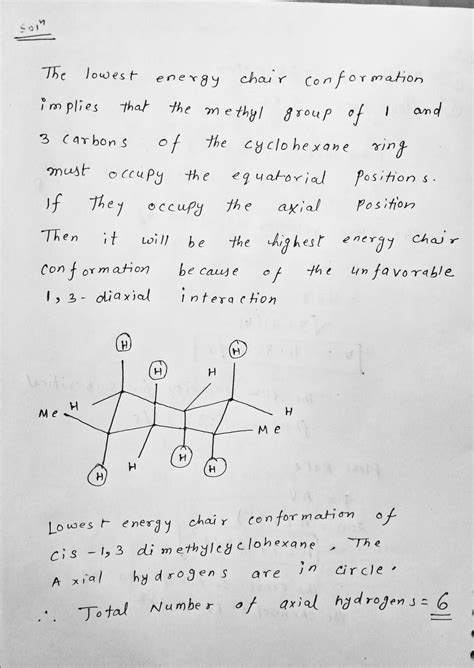 Solⁿ
The lowest energy chair conformation
implies that the methyl group of 1 and
3 carbons of the cyclohexane ring
must occupy the equatorial positions.
If they occupy the axial position
Then it will be the highest energy chair
conformation because of the unfavorable
1,3-diaxial interaction
H H
H H
Me H H
Me
H H H H
Lowest energy chair conformation of
cis-1,3 dimethylcyclohexane, The
Axial hydrogens are in circle.
∴ Total Number of axial hydrogens = 6